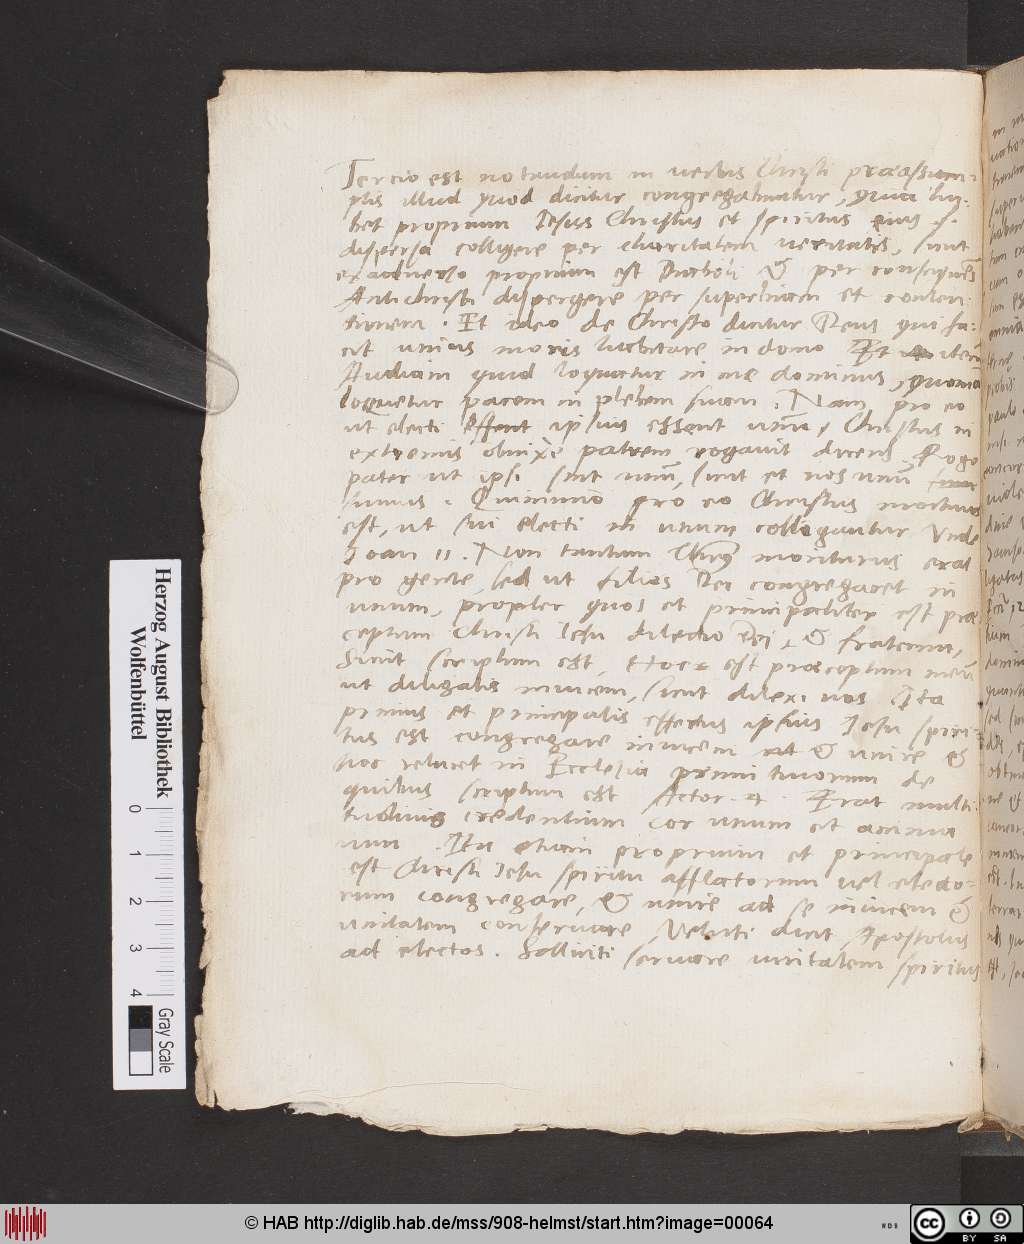 Tercio est notandum in verbis Christi praeassum-
ptis illud quod dicitur congregabuntur, quia
proprium Iesus Christus et spiritus eius
dispersa colligere per charitatem veritatis, sicut
exadverso proprium est Diaboli & per
Antichristi dispergere per superbiam et conten
tionem. Et ideo de Christo dicitur Deus qui fa-
cit unius moris habitare in domo Et
Audiam quid loquatur in me dominus, quoniam
loquetur pacem in plebem suam. Nam pro eo
ut electi essent ipsius essent unum, Christus in
extremis obnixe patrem rogavit dicens Rogo
pater ut ipsi sint unum, sicut et nos unum
sumus. Quinimmo pro eo Christus mortuus
est, ut sui electi in unum colligantur Unde
Joan 11. Non tantum moriturus erat
pro gente, sed ut filios Dei congregaret in
unum, propter quos et principaliter est prae
ceptum Christi Iesu dilectio Dei, & fraterna,
Sicut scriptum est, Hoc est praeceptum meum
ut diligatis invicem, sicut dilexi vos Ita
primus et principalis effectus ipsius Iesu spiri-
tus est congregare invicem & unire &
hoc relucet in Ecclesia primitivorum de
quibus scriptum est Actor. 4. Erat multi
tudinis credentium cor unum et anima
una. Ita etiam proprium et principale
est Christi Iesu spiritu afflatorum vel electo-
rum congregare, & unire ad se invicem &
unitatem conservare, Veluti dicit Apostolus
ad electos. Solliciti servare unitatem spiritus
Herzog August Bibliothek
Wolfenbüttel
0 1 2 3 4
Gray Scale
© HAB http://diglib.hab.de/mss/908-helmst/start.htm?image=00064
WDB
cc BY SA